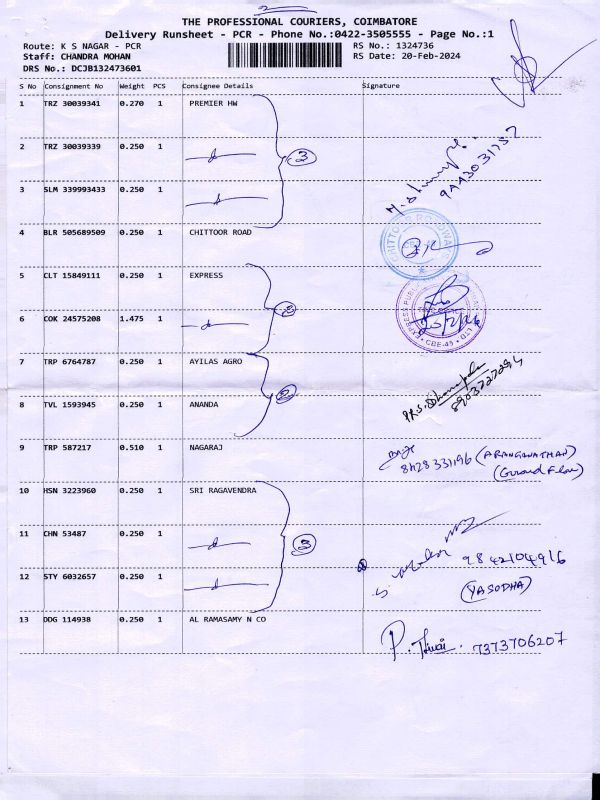 2
THE PROFESSIONAL COURIERS, COIMBATORE
Delivery Runsheet - PCR - Phone No.:0422-3505555 - Page No.:1
Route: K S NAGAR - PCR
RS No.: 1324736
Staff: CHANDRA MOHAN
RS Date: 20-Feb-2024
DRS No.: DCJB132473601
S No Consignment No Weight PCS Consignee Details Signature
1 TRZ 30039341 0.270 1 PREMIER HW
2 TRZ 30039339 0.250 1
3
3 SLM 339993433 0.250 1
4 BLR 505689509 0.250 1 CHITTOOR ROAD
CHITTOOR ROADWAYS
5 CLT 15849111 0.250 1 EXPRESS
2
6 COK 24575208 1.475 1
CBE-45
7 TRP 6764787 0.250 1 AYILAS AGRO
2
8903727294
8 TVL 1593945 0.250 1 ANANDA
9 TRP 587217 0.510 1 NAGARAJ
8428331196 (ARANGANATHAN)
(Ground Floor)
10 HSN 3223960 0.250 1 SRI RAGAVENDRA
11 CHN 53487 0.250 1
3
9842104916
12 STY 6032657 0.250 1
(YASODHA)
13 DDG 114938 0.250 1 AL RAMASAMY N CO
7373706207